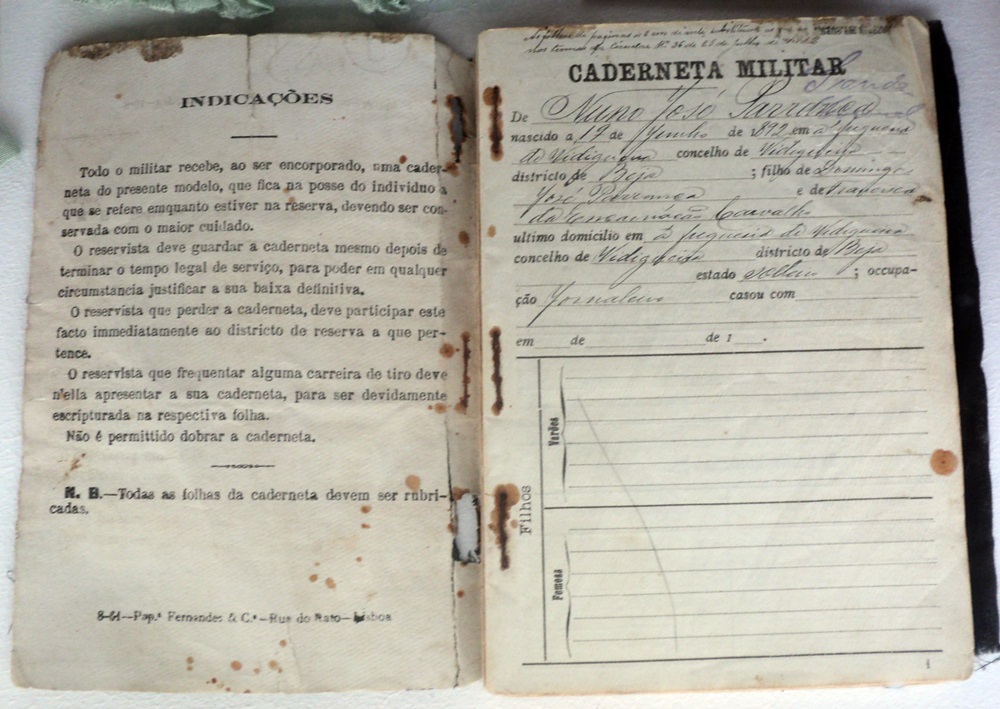 INDICAÇÕES
Todo o militar recebe, ao ser encorporado, uma cader-
neta do presente modelo, que fica na posse do individuo a
que se refere emquanto estiver na reserva, devendo ser con-
servada com o maior cuidado.
O reservista deve guardar a caderneta mesmo depois de
terminar o tempo legal de serviço, para poder em qualquer
circumstancia justificar a sua baixa definitiva.
O reservista que perder a caderneta, deve participar este
facto immediatamente ao districto de reserva a que per-
tence.
O reservista que frequentar alguma carreira de tiro deve
n'ella apresentar a sua caderneta, para ser devidamente
escripturada na respectiva folha.
Não é permittido dobrar a caderneta.
N. B.—Todas as folhas da caderneta devem ser rubri-
cadas.
Pap.ª Fernandes & C.ª—Rua do Rato—Lisboa
CADERNETA MILITAR
De Nuno José Parrança
nascido a 19 de Junho de 1892 em
de Vidigueira concelho de Vidigueira
districto de Beja ; filho de Domingos
José Parrança e de Francisca
da Encarnação Carvalho
ultimo domicilio em de Vidigueira
concelho de Vidigueira districto de Beja
estado ; occupa-
ção Jornaleiro casou com
em de de 1 .
Filhos
Varões
Femeas
1